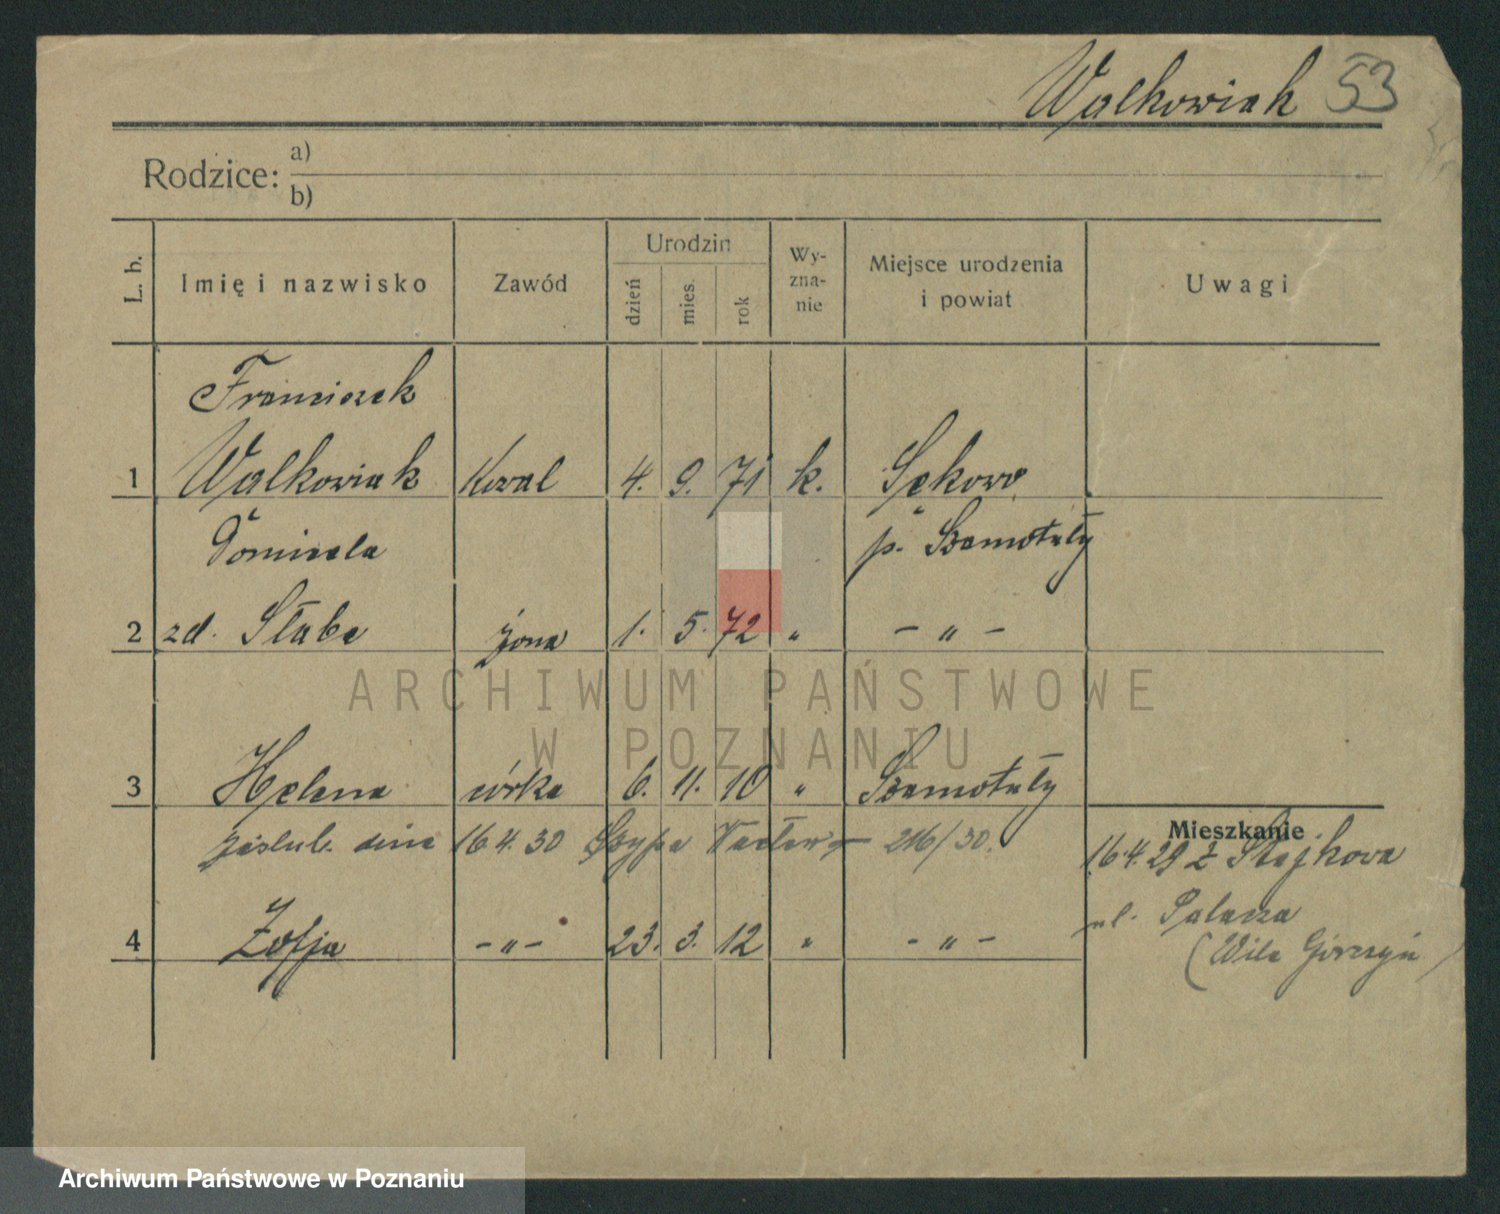 Walkowiak 53
Rodzice: a)
b)
L. b. Imię i nazwisko Zawód Urodzin dzień mies. rok Wy-zna-nie Miejsce urodzenia i powiat Uwagi
Franciszek
1 Walkowiak Kowal 4. 9. 71 k. Sękowo
p. Szamotuły
2 zd. Słaba żona 1. 5. 72 " – " –
3 Helena córka 6. 11. 10 " Szamotuły
zaślub. dnia 16.4.30 Szypa Wacław 216/30.
Mieszkanie
16.4.29 z Stajkowa
4 Zofja – " – 23. 3. 12 " – " –
ul. Palacza
(Wila Górczyn)
ARCHIWUM PAŃSTWOWE
W POZNANIU
Archiwum Państwowe w Poznaniu